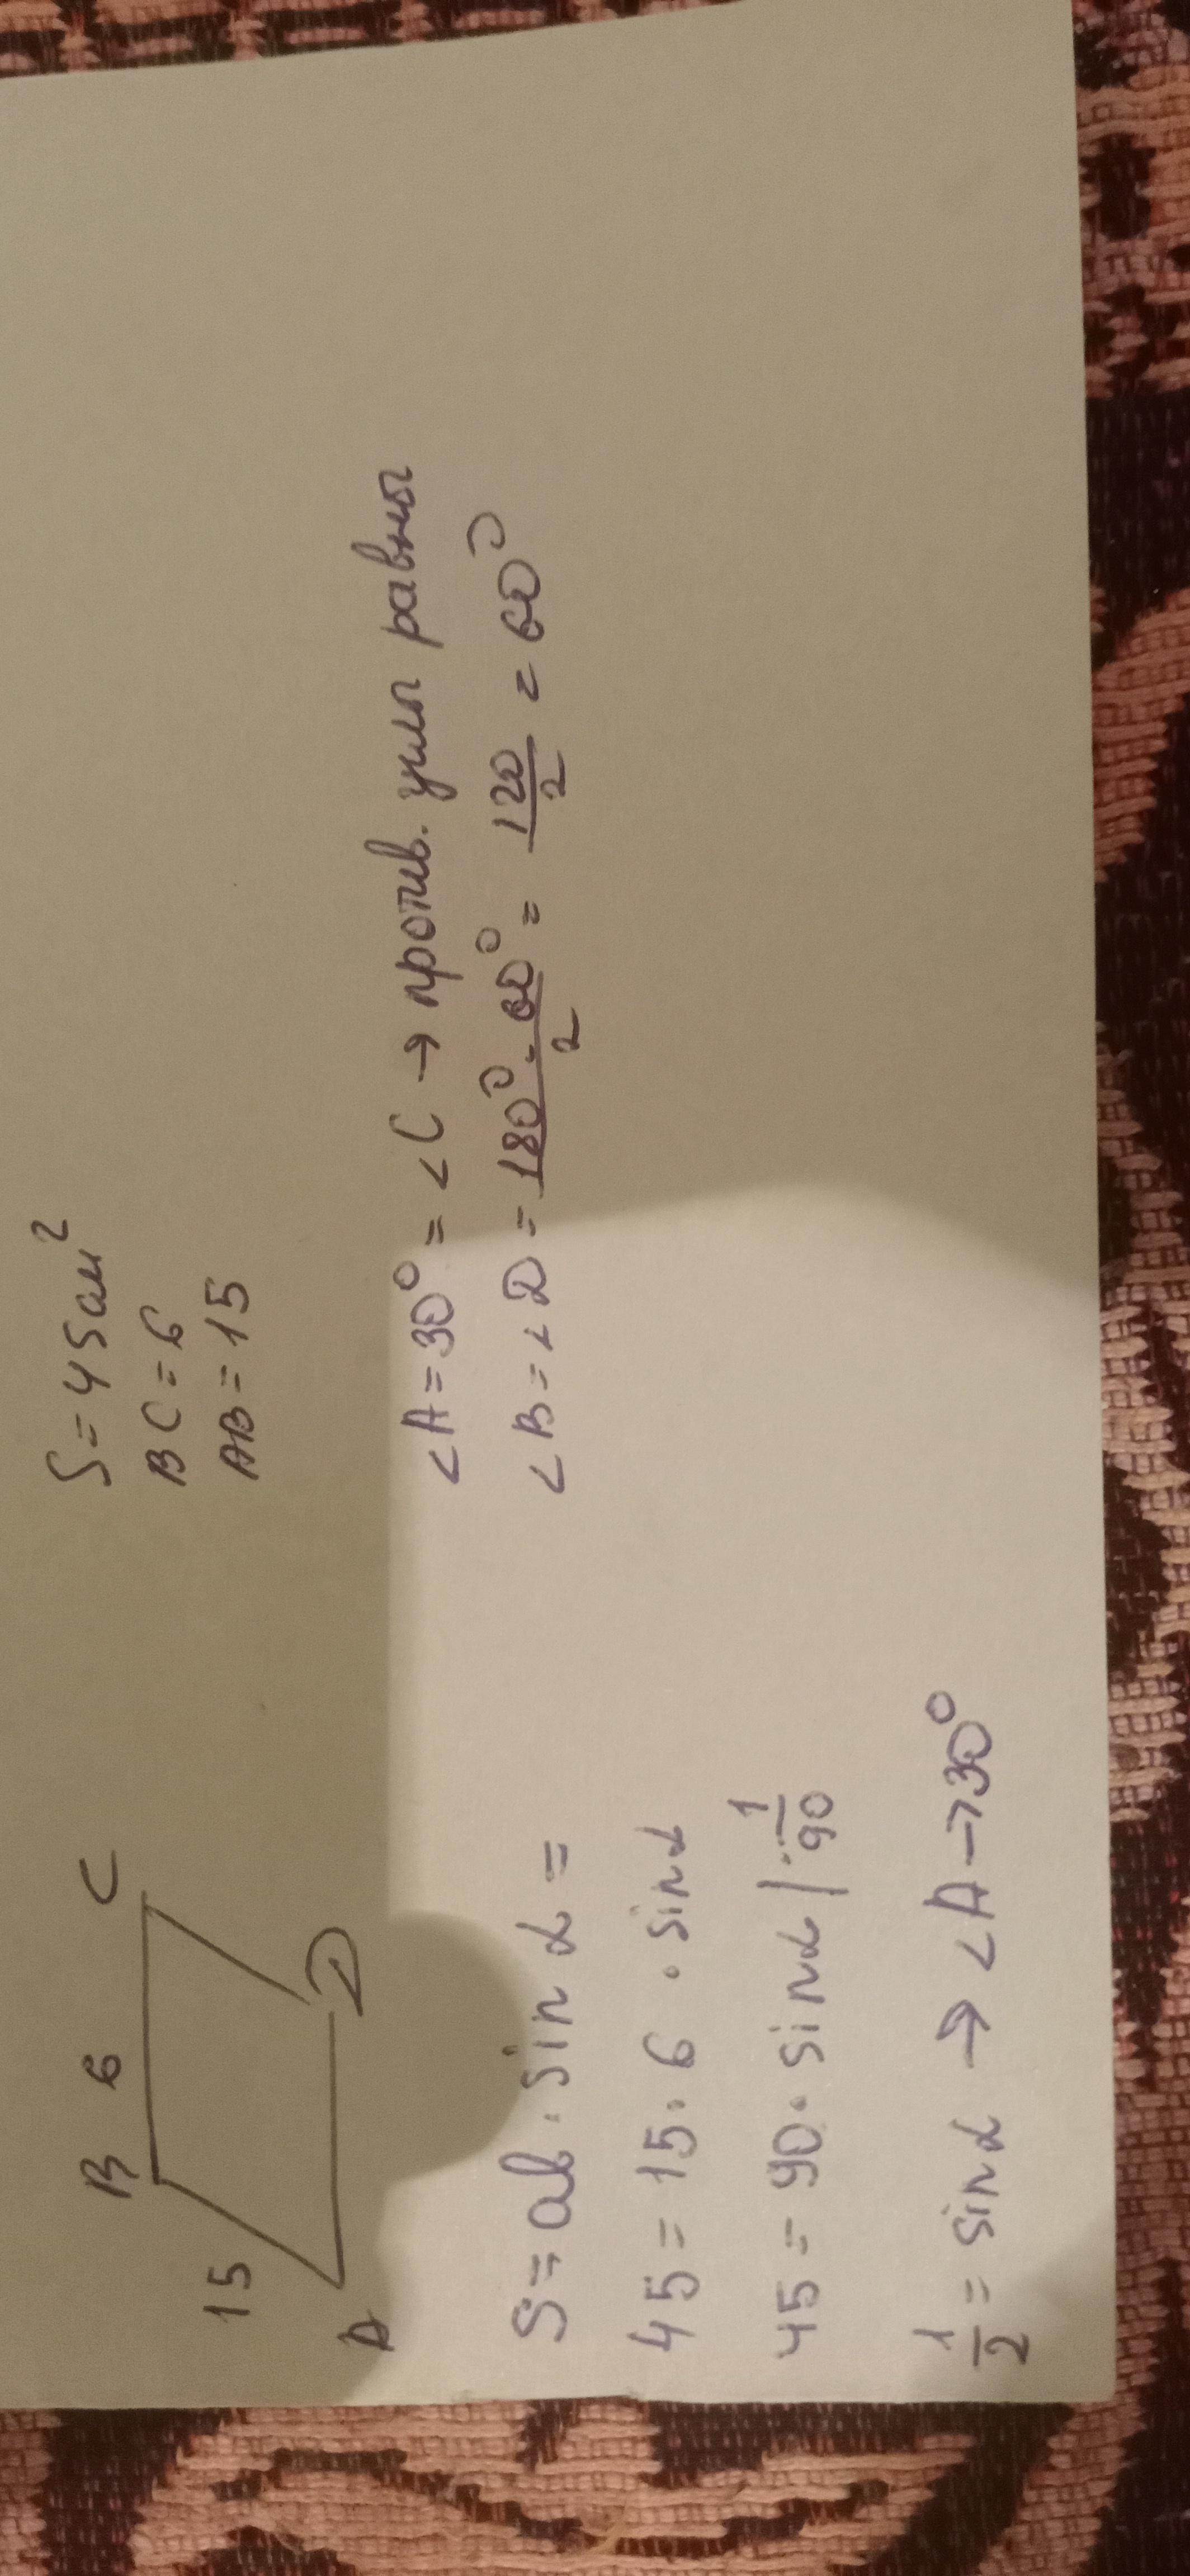 B 6 C
15
A D
S = 45 см²
BC = 6
AB = 15
S = ab · sin α =
45 = 15 · 6 · sin α
45 = 90 · sin α | · 1/90
1/2 = sin α → ∠A → 30°
∠A = 30° = ∠C → против. углы равны
∠B = ∠D = (180° - 60°)/2 = 120/2 = 60°